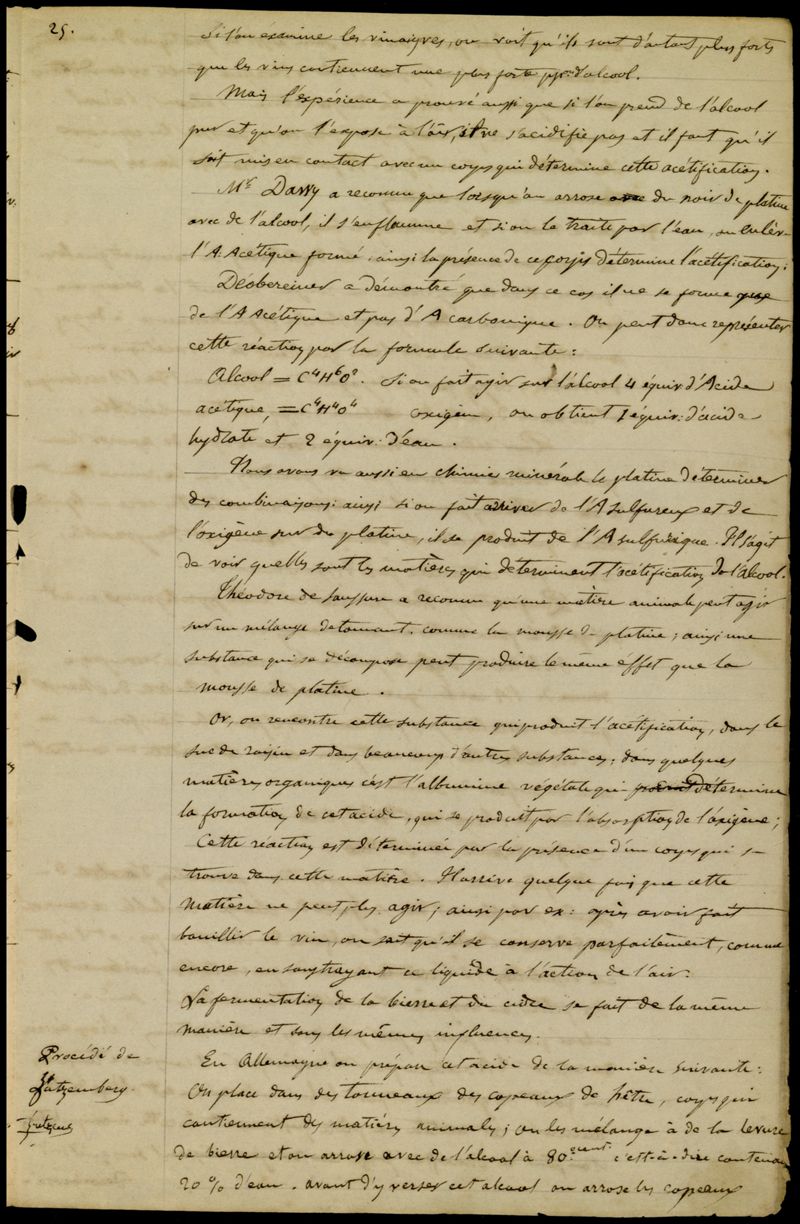 25.
Si l'on examine les vinaigres, on voit qu'ils sont d'autant plus forts
que les vins contiennent une plus forte pp.on d'alcool.
Mais l'expérience a prouvé aussi que si l'on prend de l'alcool
pur et qu'on l'expose à l'air, il ne s'acidifie pas et il faut qu'il
soit mis en contact avec un corps qui détermine cette acétification.
Mr Davy a reconnu que lorsqu'on arrose du noir de platine
avec de l'alcool, il s'enflamme et si on le traite par l'eau, on enlève
l'A. Acétique formé, ainsi la présence de ce corps détermine l'acétification;
Déobereiner a démontré que dans ce cas il ne se forme que
de l'A Acétique et pas d'A carbonique. On peut donc représenter
cette réaction par la formule suivante:
Alcool = C4H6O2. Si on fait agir sur l'alcool 4 équiv. d'Acide
acétique, = C4H4O4 oxigèn, on obtient 1 équiv: d'acide
hydraté et 2 équiv: d'eau.
Nous avons vu aussi en chimie minérale le platine déterminer
des combinaisons: ainsi si on fait arriver de l'A sulfureux et de
l'oxigène sur du platine, il se produit de l'A sulfurique. Il s'agit
de voir quelles sont les matières qui déterminent l'acétification de l'alcool.
Théodore de Saussure a reconnu qu'une matière animale peut agir
sur un mélange detonnant, comme la mousse de platine; ainsi une
substance qui se décompose peut produire le même effet que la
mousse de platine.
Or, on rencontre cette substance qui produit l'acétification, dans le
suc du raisin et dans beaucoup d'autres substances; dans quelques
matières organiques c'est l'albumine végétale qui détermine
la formation de cet acide, qui se produit par l'absorption de l'oxigène;
Cette réaction est déterminée par la présence d'un corps qui se
trouve dans cette matière. Il arrive quelque fois que cette
matière ne peut plus agir; ainsi par ex: après avoir fait
bouillir le vin, on sait qu'il se conserve parfaitement, comme
encore, en soustrayant ce liquide à l'action de l'air.
La fermentation de la bierre et du cidre se fait de la même
manière et sous les mêmes influences.
Procédé de
En Allemagne on prépare cet acide de la manière suivante:
On place dans des tonneaux des copeaux de hêtre, corps qui
contiennent des matières animales; on les mélange à de la levure
de bierre et on arrose avec de l'alcool à 80 cent. c'est-à-dire contenant
20 % d'eau. avant d'y verser cet alcool on arrose les copeaux